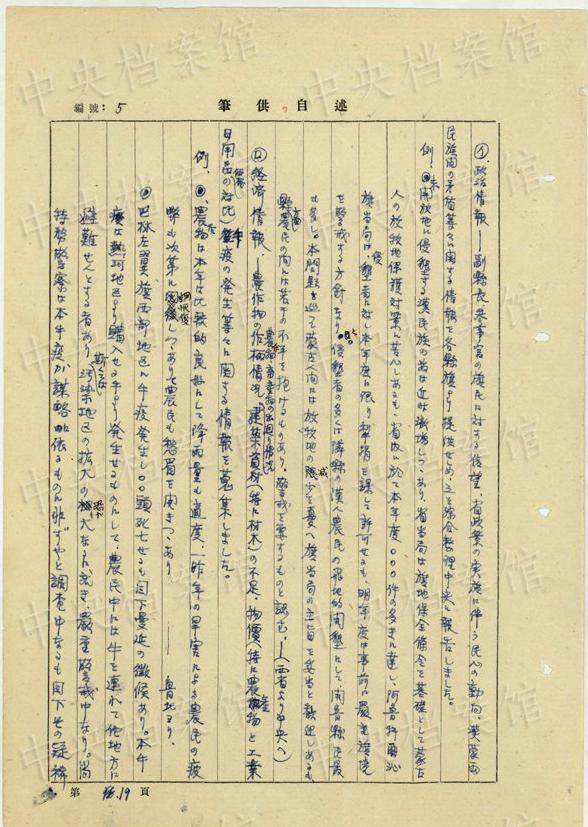 中央档案馆
編號：5
筆供自述
①、政治情報——副縣長参事官の旗民に対する信望、省政策の実施に伴う民心の動向、漢蒙両
民族間の矛盾等々に関する情報を各縣旗より提供せしめ、之を綜合整理中央に報告しました。
例、●未開放地に侵墾する漢民族の数は近時漸増しつゝあり、省当局は旗地保全條令を基礎として蒙古
人の放牧地保護対策に苦心しあるも、省内に於て本年度○○○件の多きに達し、阿魯科爾沁
旗当局は、侵墾者に対し本年度に限り科料を課して許可せるも、明年度は事前に厳に旗境
を警戒する方針なりと。侵墾者の多くは隣縣の漢人農民の飛地的開墾にして開魯縣民最
も多し。本問題を巡って蒙古人間には放牧地の減少を憂へ旗当局の主旨を妥当と歓迎しあるも
縣農民の間には若干の不平を抱けるものあり、警戒を要するものと認む。——（西省より中央へ）
②経済情報——農作物の作柄情況、農産物畜産物の出廻り情況、建築資材（特に材木）の不足、物價（特に農産物と工業
日用品の価格対比）牛疫の発生等々に関する情報を蒐集しました。
例、●、農作物は本年は比較的良好にして降雨量も適度、一昨年の旱害による農民の疲
弊も次第に恢復しつゝありて農民も愁眉を開きつゝあり——魯北より、
●巴林左翼旗西部地区に牛疫発生し○○頭死亡せるも目下蔓延の徴候あり。本牛
疫は熱河地区より購入せる牛より発生せるものにして、農民中には牛を連れて他地方に
避難せんとする者あり、斯くては汚染地区の拡大の恐れ大なるに就き、厳重警戒中なり。尚
特務警察は本牛疫が謀略に依るものに非ずやと調査中なるも目下その疑稀
第 19 頁